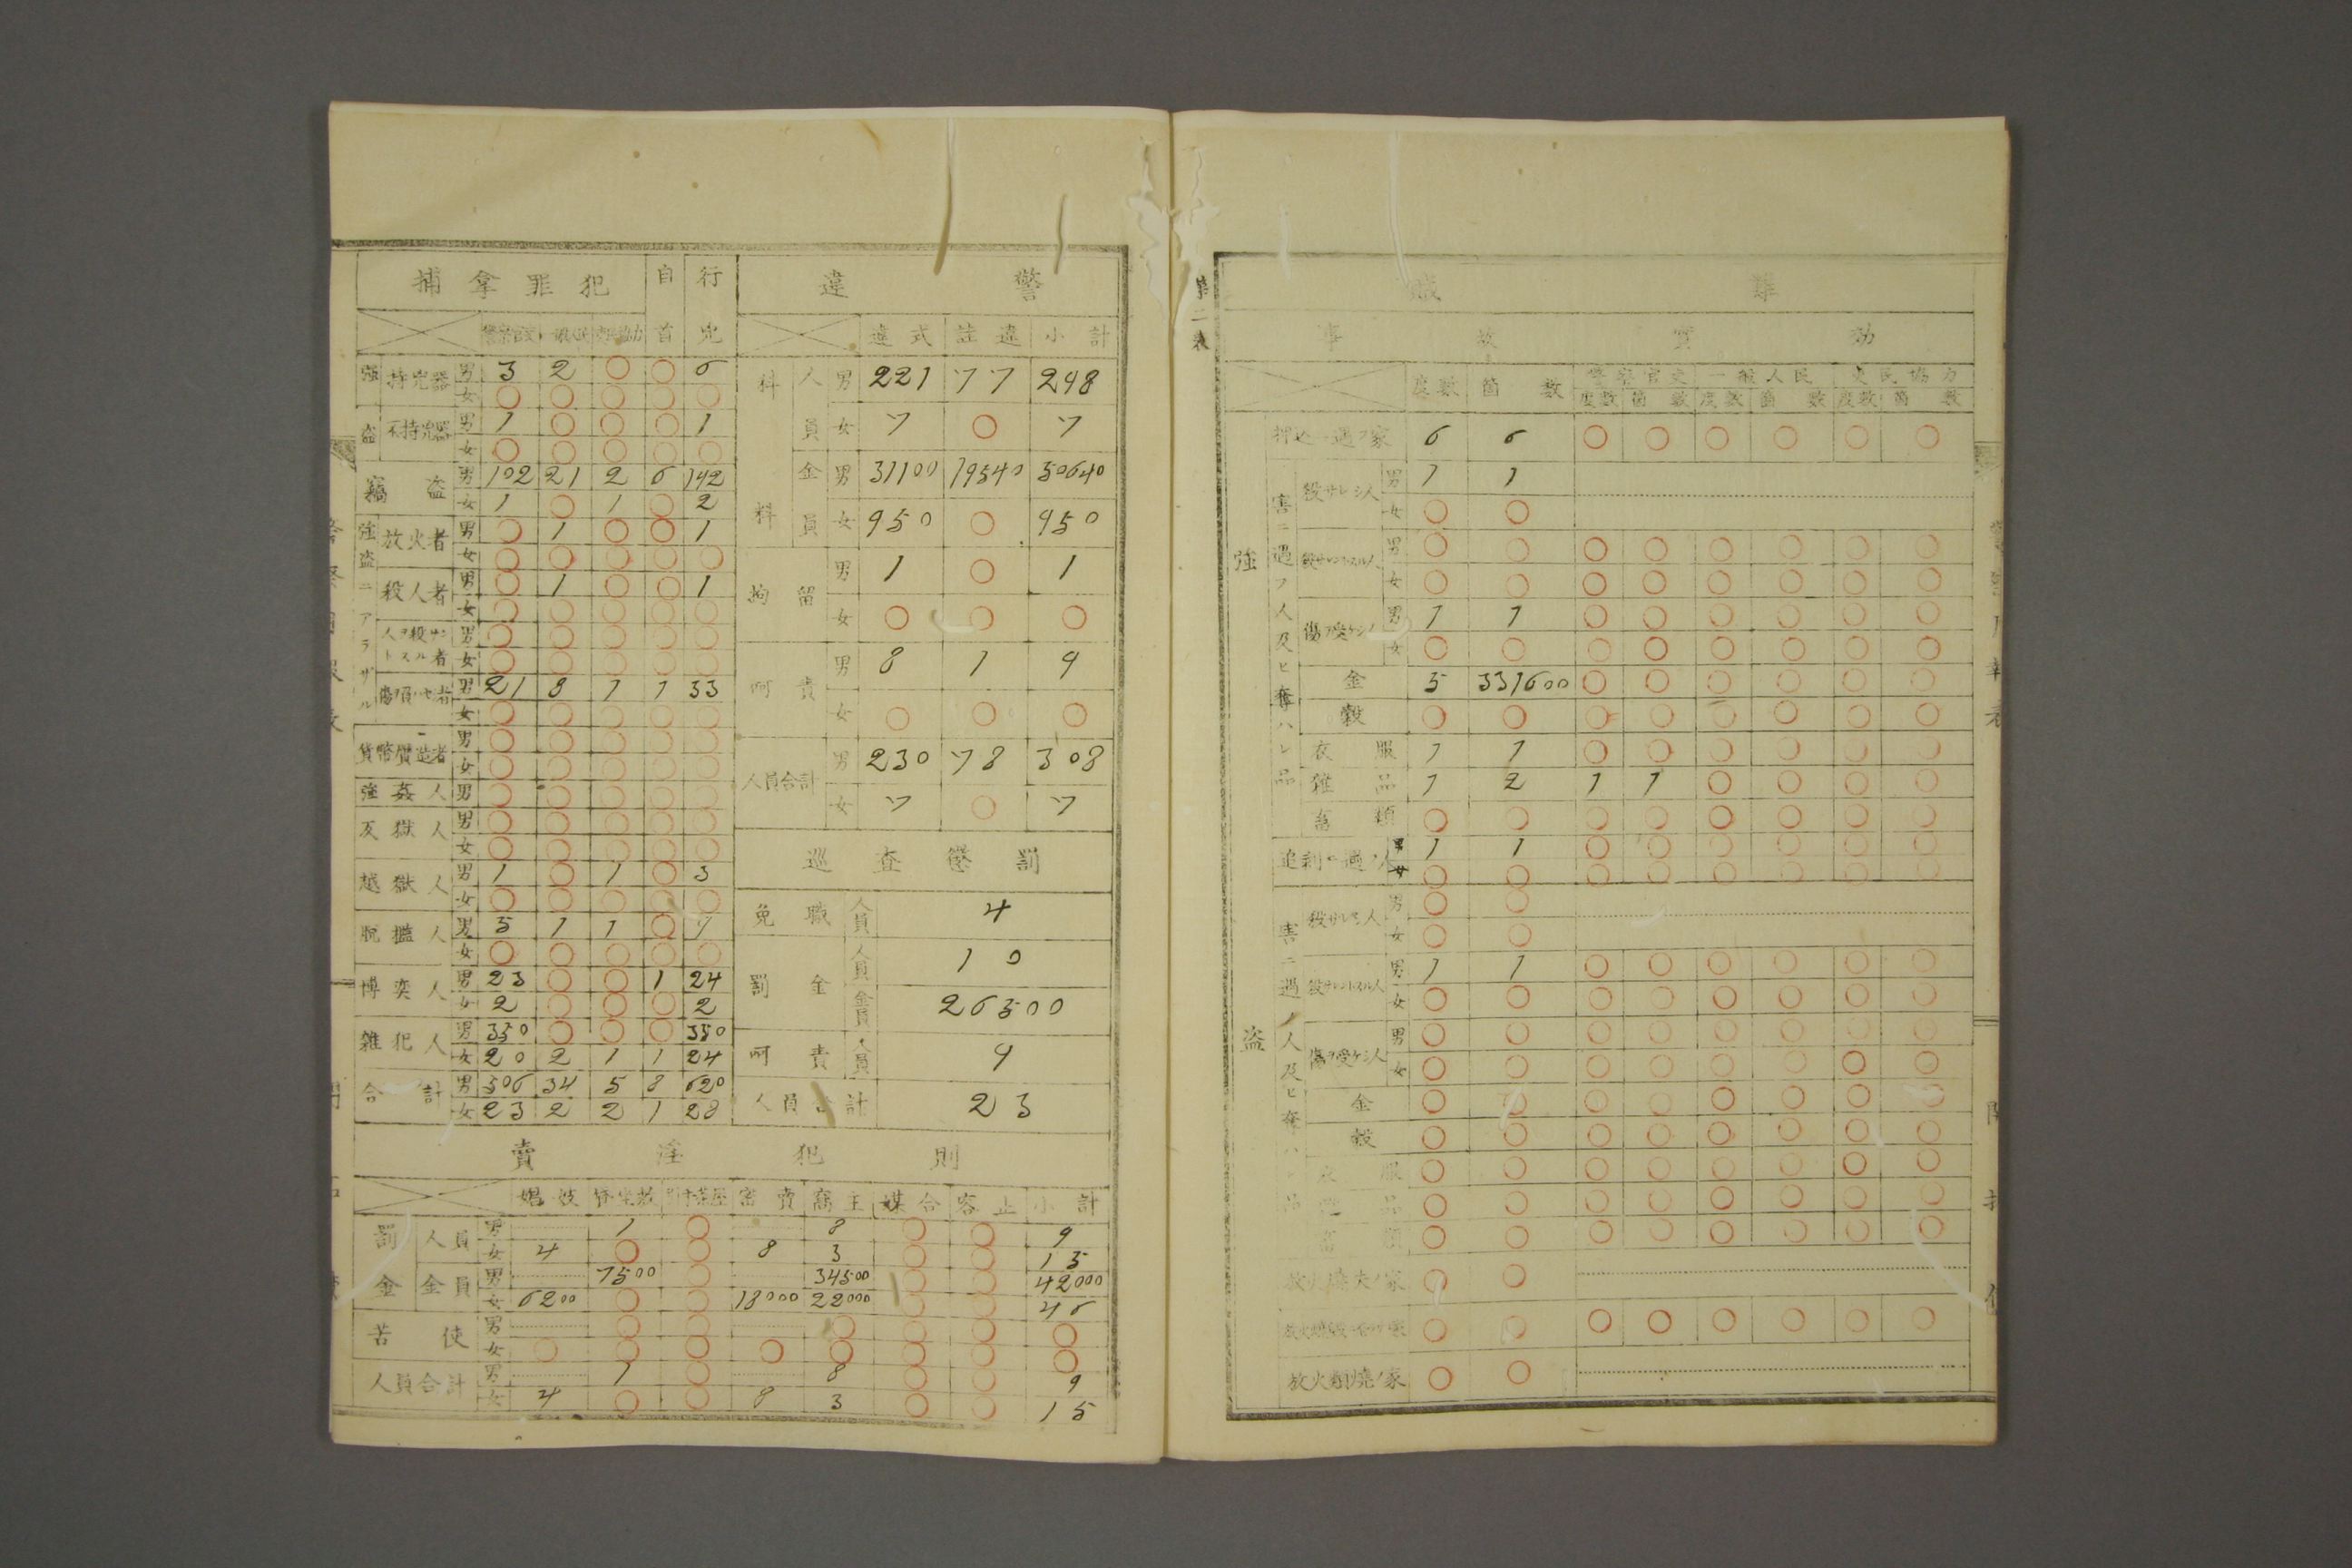 第二表
職 難
事 故 實 効
度數 箇數 警察官吏 一般人民 吏民協力
度數 箇數 度數 箇數 度數 箇數
強盗
押込ニ遇フ家 6 6 ○ ○ ○ ○ ○ ○
害ニ遇フ人及ヒ奪ハレシ品
殺サレシ人 男 1 1
女 ○ ○
男 ○ ○ ○ ○ ○ ○ ○ ○
女 ○ ○ ○ ○ ○ ○ ○ ○
傷ヲ受ケシ人 男 1 1 ○ ○ ○ ○ ○ ○
女 ○ ○ ○ ○ ○ ○ ○ ○
金 5 331600 ○ ○ ○ ○ ○ ○
穀 ○ ○ ○ ○ ○ ○ ○ ○
衣服 1 1 ○ ○ ○ ○ ○ ○
雜品 1 2 1 1 ○ ○ ○ ○
畜類 ○ ○ ○ ○ ○ ○ ○ ○
追剥ニ遇フ人 男 1 1 ○ ○ ○ ○ ○ ○
女 ○ ○ ○ ○ ○ ○ ○ ○
害ニ遇フ人及ヒ奪ハレシ品
殺サレシ人 男 ○ ○
女 ○ ○
男 1 1 ○ ○ ○ ○ ○ ○
女 ○ ○ ○ ○ ○ ○ ○ ○
傷ヲ受ケシ人 男 ○ ○ ○ ○ ○ ○ ○ ○
女 ○ ○ ○ ○ ○ ○ ○ ○
金 ○ ○ ○ ○ ○ ○ ○ ○
穀 ○ ○ ○ ○ ○ ○ ○ ○
衣服 ○ ○ ○ ○ ○ ○ ○ ○
品 ○ ○ ○ ○ ○ ○ ○ ○
畜類 ○ ○ ○ ○ ○ ○ ○ ○
家 ○ ○
○ ○ ○ ○ ○ ○ ○ ○
放火 家 ○ ○
警 違
違式 詿違 小計
科料 人員 男 221 77 298
女 7 ○ 7
金員 男 31100 19540 50640
女 950 ○ 950
拘留 男 1 ○ 1
女 ○ ○ ○
呵責 男 8 1 9
女 ○ ○ ○
人員合計 男 230 78 308
女 7 ○ 7
巡査懲罰
免職 人員 4
罰金 人員 10
金員 26500
呵責 人員 9
人員合計 23
捕拿罪犯 自首 行
強盗 持兇器 男 3 2 ○ ○ 6
女 ○ ○ ○ ○ ○
不持兇器 男 1 ○ ○ ○ 1
女 ○ ○ ○ ○ ○
竊盗 男 102 21 2 6 142
女 1 ○ 1 ○ 2
強盗ニアラサル
放火者 男 ○ 1 ○ ○ 1
女 ○ ○ ○ ○ ○
殺人者 男 ○ 1 ○ ○ 1
女 ○ ○ ○ ○ ○
人ヲ殺サントスル者 男 ○ ○ ○ ○ ○
女 ○ ○ ○ ○ ○
傷ヲ負ハセシ者 男 21 8 1 1 33
女 ○ ○ ○ ○ ○
貨幣贋造者 男 ○ ○ ○ ○ ○
女 ○ ○ ○ ○ ○
強姦人 男 ○ ○ ○ ○ ○
反獄人 男 ○ ○ ○ ○ ○
女 ○ ○ ○ ○ ○
越獄人 男 1 ○ 1 ○ 3
女 ○ ○ ○ ○ ○
脱檻人 男 5 1 1 ○ 7
女 ○ ○ ○ ○ ○
博奕人 男 23 ○ ○ 1 24
女 2 ○ ○ ○ 2
雜犯人 男 350 ○ ○ ○ 350
女 20 2 1 1 24
合計 男 506 34 5 8 620
女 23 2 2 1 28
賣淫犯則
娼妓 密賣 窩主 媒合 容止 小計
罰金 人員 男 1 ○ 8 ○ ○ 9
女 4 ○ ○ 8 3 ○ ○ 15
金員 男 7500 ○ 34500 ○ ○ 42000
女 6200 ○ ○ 18000 22000 ○ ○ 46
苦使 男 ○ ○ ○ ○ ○ ○
女 ○ ○ ○ ○ ○ ○ ○ ○
人員合計 男 1 ○ 8 ○ ○ 9
女 4 ○ ○ 8 3 ○ ○ 15